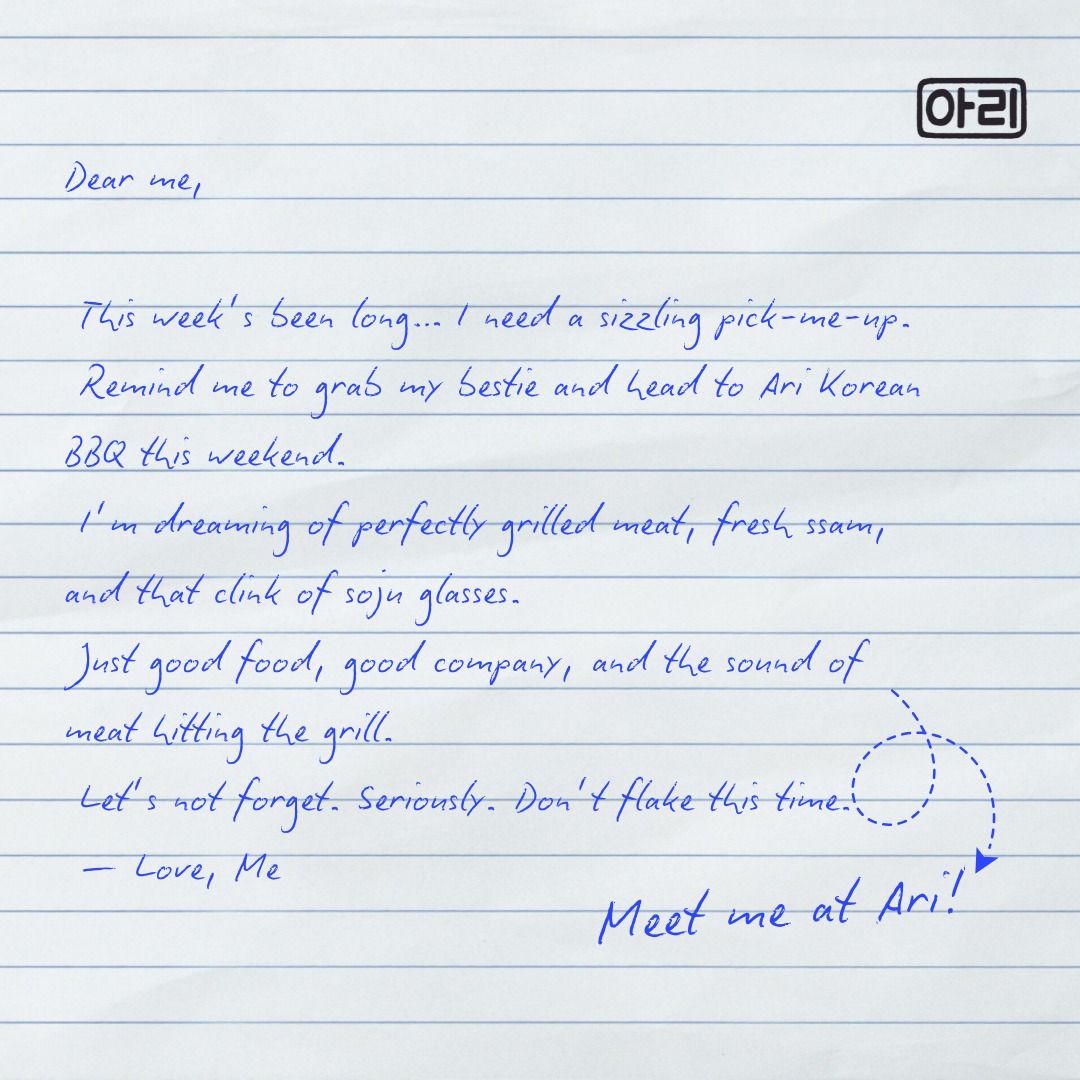 아리
Dear me,
This week's been long... I need a sizzling pick-me-up.
Remind me to grab my bestie and head to Ari Korean
BBQ this weekend.
I'm dreaming of perfectly grilled meat, fresh ssam,
and that clink of soju glasses.
Just good food, good company, and the sound of
meat hitting the grill.
Let's not forget. Seriously. Don't flake this time.
— Love, Me
Meet me at Ari!